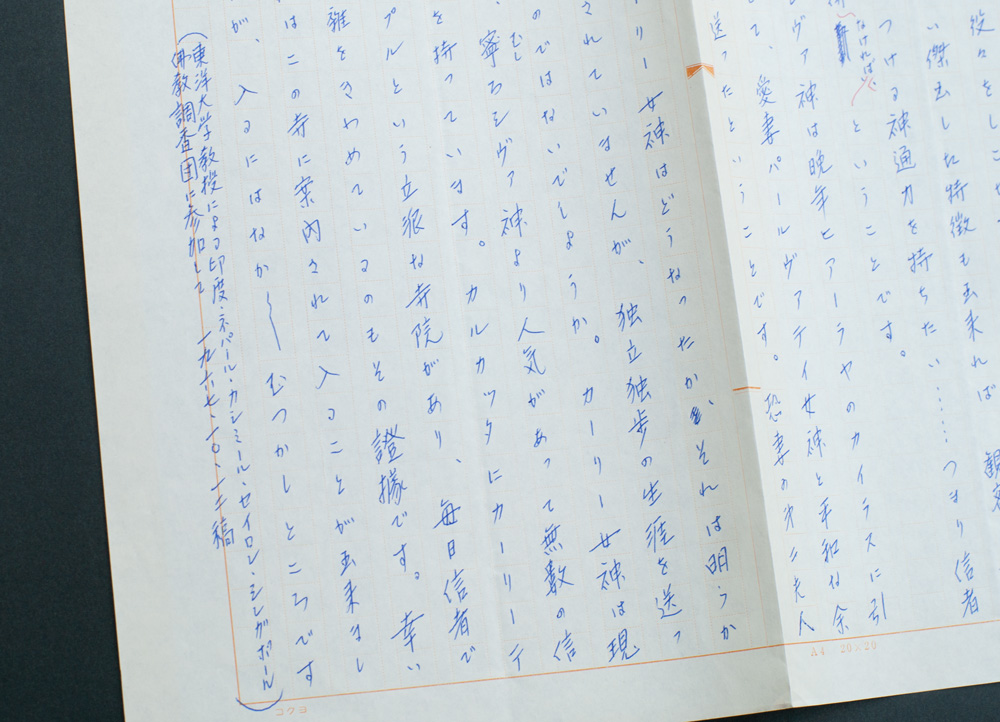 役々をしこ
い傑出した特徴も出来れば 観察
つける神通力を持ちたい……つまり信者
なければ
ということです。
ヴァ神は晩年ヒマーラヤのカイラスに引
て、愛妻パールヴァティ女神と平和な余
送ったということです。恐妻の第二夫人
リー女神はどうなったか、それは明らか
されていませんが、独立独歩の生涯を送っ
のではないでしょうか。カーリー女神は現
むし
寧ろシヴァ神より人気があって無数の信
を持っています。カルカッタにカーリーテ
プルという立派な寺院があり、毎日信者で
雑をきわめているのもその證據です。幸い
はこの寺に案内されて入ることが出来まし
が、入るにはなか〳〵むつかしところです
(東洋大学教授による印度・ネパール・カシミール・セイロン・シンガポール
佛教調査団に参加して 一九六七、一〇、一二稿)
A4 20×20
273